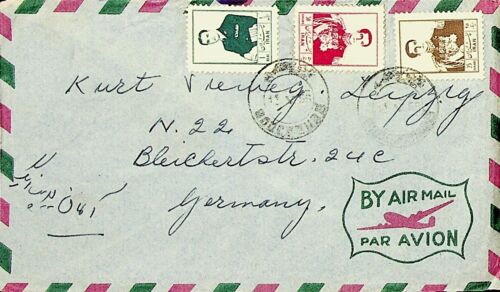 IRAN IRAN IRAN
Kurt Vieweg Leipzig
N. 22
Bleichertstr. 24c
Germany.
BY AIR MAIL
PAR AVION